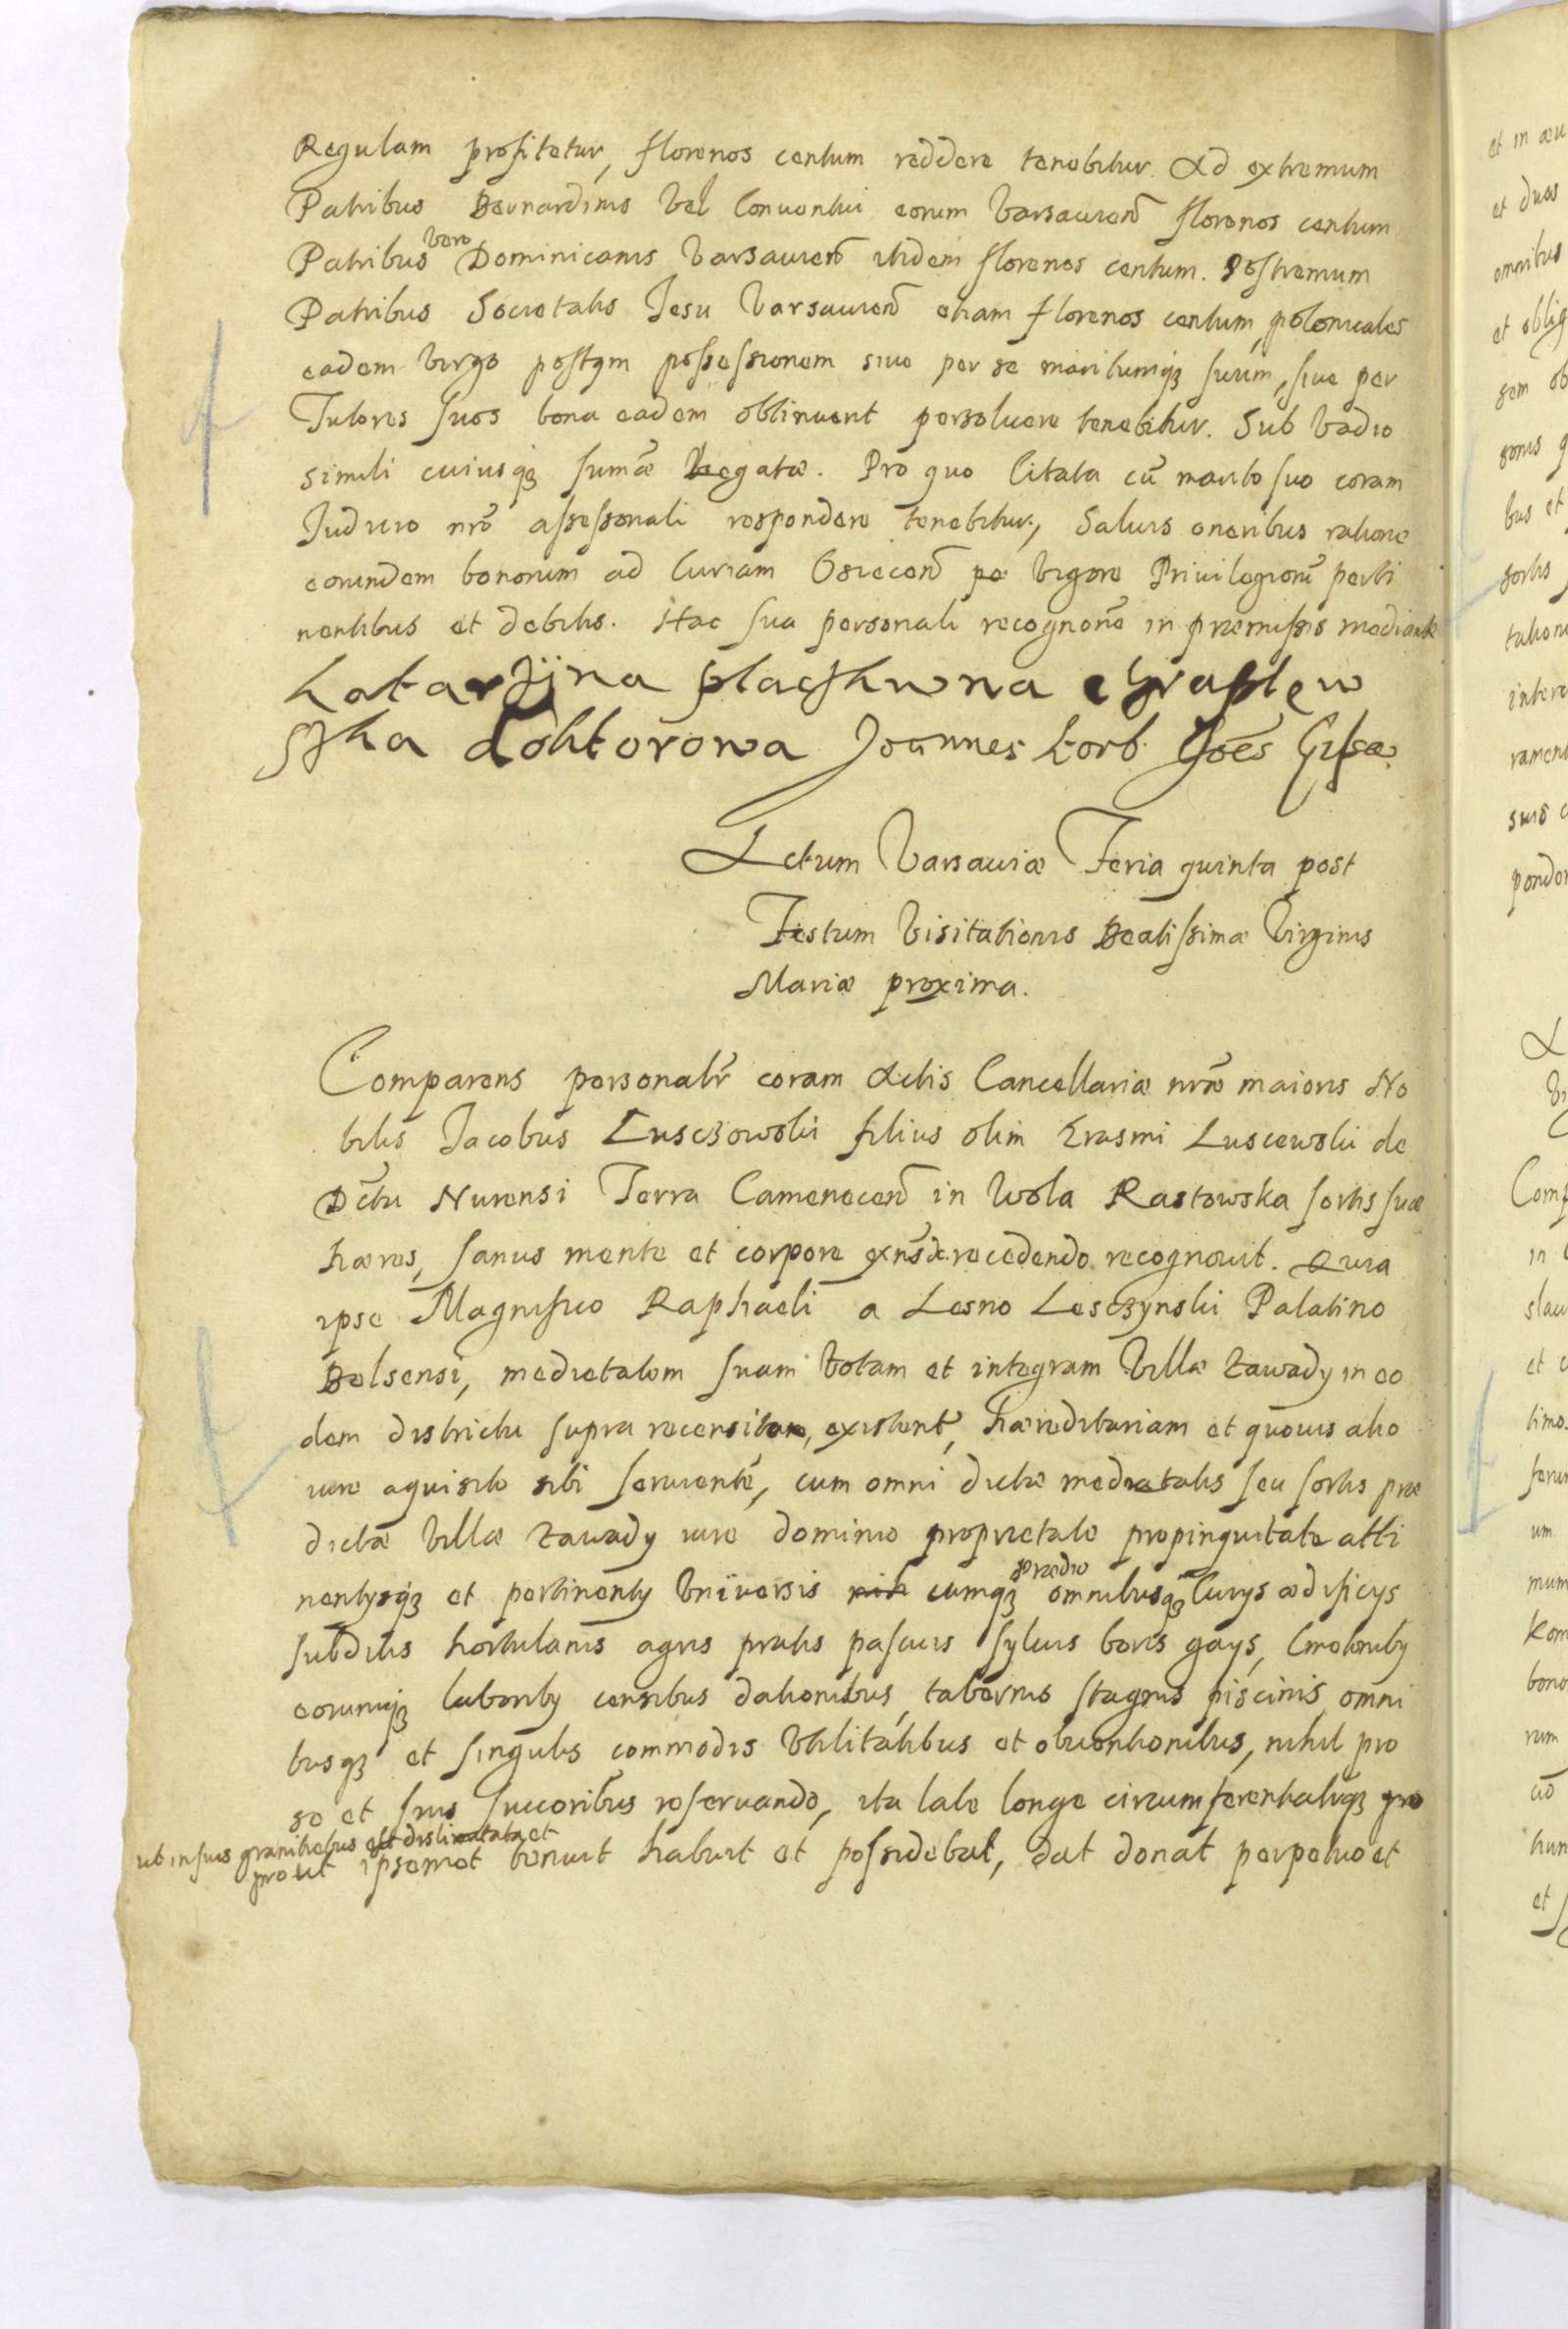 Regulam profitetur, florenos centum reddere tenebitur. Ad extremum
Patribus Bernardinis vel Conuentui eorum Varsauien̄ florenos centum
Patribus vero Dominicanis Varsauien̄ itidem florenos centum. Postremum
Patribus Societatis Jesu Varsauien̄ etiam florenos centum polonicales
eadem virgo postqm possessionem siue per se maritumqȝ suum, siue per
Tutores suos bona eadem obtinuerit persoluere tenebitur. Sub vadio
simili cuiusqȝ sumæ legatæ. Pro quo Citata cū marito suo coram
Judicio nrō assessoriali respondere tenebitur, Saluis oneribus ratione
eorundem bonorum ad Curiam Osiecen̄ vigore Priuilegiorū perti
nentibus et debitis. Hac sua personali recognonē in præmissis mediante
Katarzÿna
ska doktorowa Joannes Korb
Actum Varsauiæ Feria quinta post
Festum Visitationis Beatissimæ Virginis
Mariæ proxima.
Comparens personalr̄ coram Actis Cancellariæ nræ maioris No
bilis Jacobus Lusczowski filius olim Erasmi Luscewski de
Dctu Nurensi Terra Camenecen̄ in Wola Rastowska sortis suæ
hæres, sanus mente et corpore exn̄s recedendo recognouit. Quia
ipse Magnifico Raphaeli a Lesno Lesczynski Palatino
Belsensi, medietatem suam totam et integram Villæ Zawady in eo
dem districtu supra recensito, existent̄, hæreditariam et quouis alio
iure aquisito sibi seruientē, cum omni dictæ medietatis seu sortis præ
dictæ Villæ Zawady iure dominio proprietate propinquitate atti
nentysqȝ et pertinenty vniuersis cumqȝ prædio omnibusqȝ Curys ædificys
subditis hortulanis agris pratis pascuis syluis boris gays, Cmetonily
eorumqȝ laborily censibus dationibus, tabernis stagnis piscinis omni
busqȝ et singulis commodis vtilitatibus et obuentionibus, nihil pro
se et suis succoribus reseruando, ita late longe circumferentialitqȝ pro
ut in suis granitiebus est et
prout ipsemet tenuit habuit et possidebat, dat donat perpetuo et